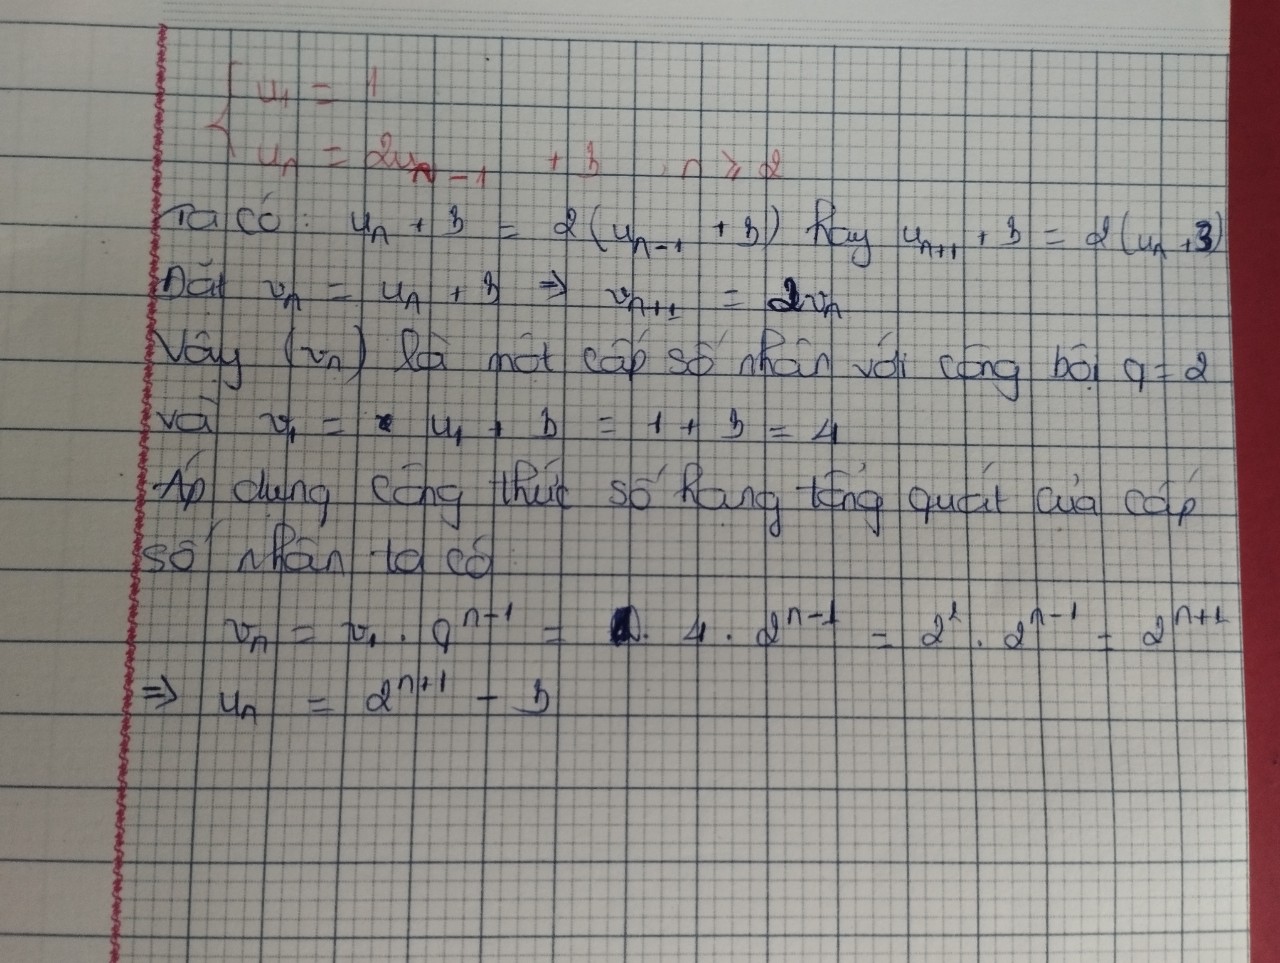 { u₁ = 1
u_n = 2u_{n-1} + 3 , n ⩾ 2
Ta có: u_n + 3 = 2(u_{n-1} + 3) hay u_{n+1} + 3 = 2(u_n + 3)
Đặt v_n = u_n + 3 ⇒ v_{n+1} = 2v_n
Vậy (v_n) là một cấp số nhân với công bội q = 2
và v₁ = u₁ + 3 = 1 + 3 = 4
Áp dụng công thức số hạng tổng quát của cấp
số nhân ta có
v_n = v₁ . q^{n-1} = 4 . 2^{n-1} = 2² . 2^{n-1} = 2^{n+1}
⇒ u_n = 2^{n+1} - 3